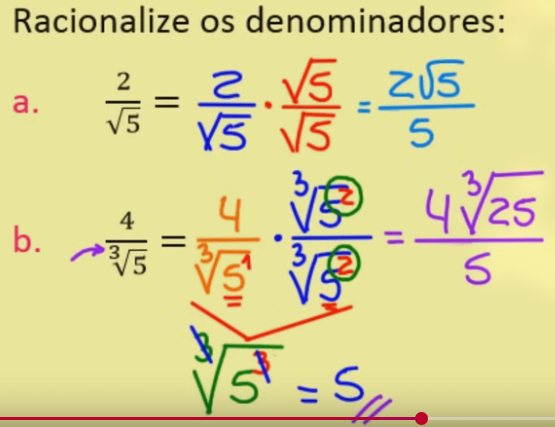 Racionalize os denominadores:
a. 2/√5 = 2/√5 · √5/√5 = 2√5/5
b. 4/³√5 = 4/³√5¹ · ³√5²/³√5² = 4³√25/5
³√5³ = 5